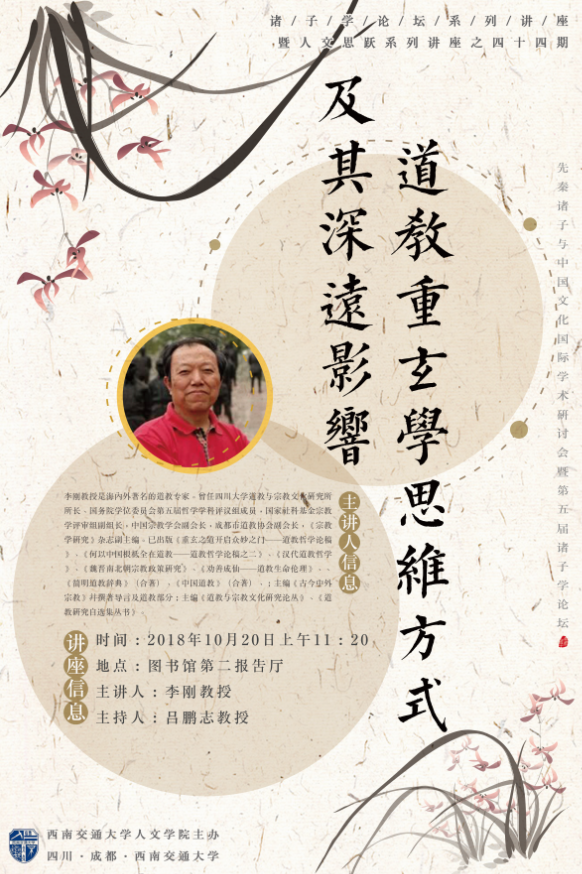 诸/子/学/论/坛/系/列/讲/座
暨人文思跃系列讲座之四十四期
道教重玄學思維方式
及其深遠影響
先秦诸子与中国文化国际学术研讨会暨第五届诸子学论坛
主讲人信息
李刚教授是海内外著名的道教专家，曾任四川大学道教与宗教文化研究所
所长、国务院学位委员会第五届哲学学科评议组成员，国家社科基金宗教
学评审组副组长，中国宗教学会副会长，成都市道教协会副会长，《宗教
学研究》杂志副主编。已出版《重玄之道开启众妙之门——道教哲学论稿
》、《何以中国根柢全在道教——道教哲学论稿之二》、《汉代道教哲学
》、《魏晋南北朝宗教政策研究》、《劝善成仙——道教生命伦理》、
《简明道教辞典》（合著）、《中国道教》（合著）、；主编《古今中外
宗教》并撰著导言及道教部分；主编《道教与宗教文化研究论丛》、《道
教研究自选集丛书》
讲座信息
时间：2018年10月20日上午11：20
地点：图书馆第二报告厅
主讲人：李刚教授
主持人：吕鹏志教授
西南交通大学人文学院主办
四川·成都·西南交通大学